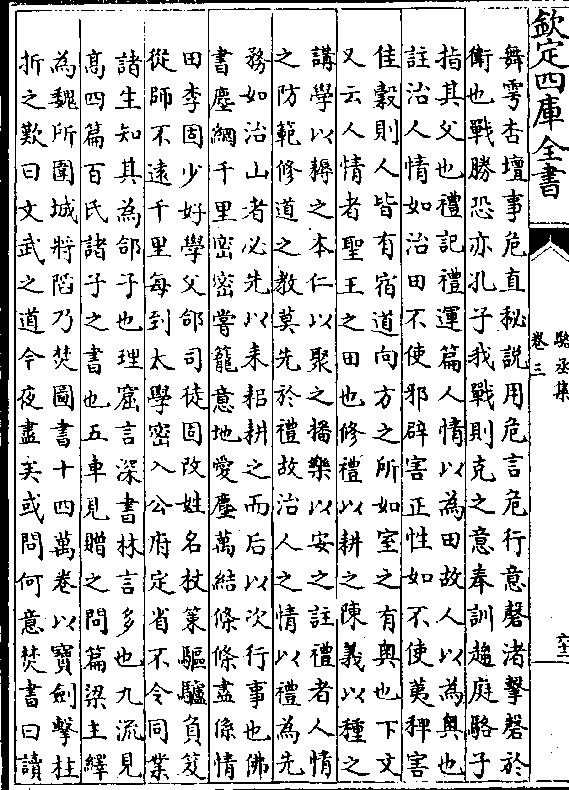 欽定四庫全書
駱丞集
卷三
六十二
舞雩杏壇事危直秘說用危言危行意磬渚擊磬於
衛也戰勝恐亦孔子我戰則克之意奉訓趨庭駱子
指其父也禮記禮運篇人情以為田故人以為奥也
註治人情如治田不使邪辟害正性如不使荑稗害
佳穀則人皆有宿道向方之所如室之有奥也下文
又云人情者聖王之田也修禮以耕之陳義以種之
講學以耨之本仁以聚之播樂以安之註禮者人情
之防範修道之教莫先於禮故治人之情以禮為先
務如治山者必先以耒耜耕之而后以次行事也佛
書塵網千里密密嘗籠意地愛塵萬結條條盡係情
田李固少好學父郃司徒固改姓名杖策驅驢負笈
從師不逺千里每到太學密入公府定省不令同業
諸生知其為郃子也理窟言深書林言多也九流見
髙四篇百氏諸子之書也五車見贈之問篇梁主繹
為魏所圍城將陷乃焚圖書十四萬卷以寶劍擊柱
折之歎曰文武之道今夜盡矣或問何意焚書曰讀